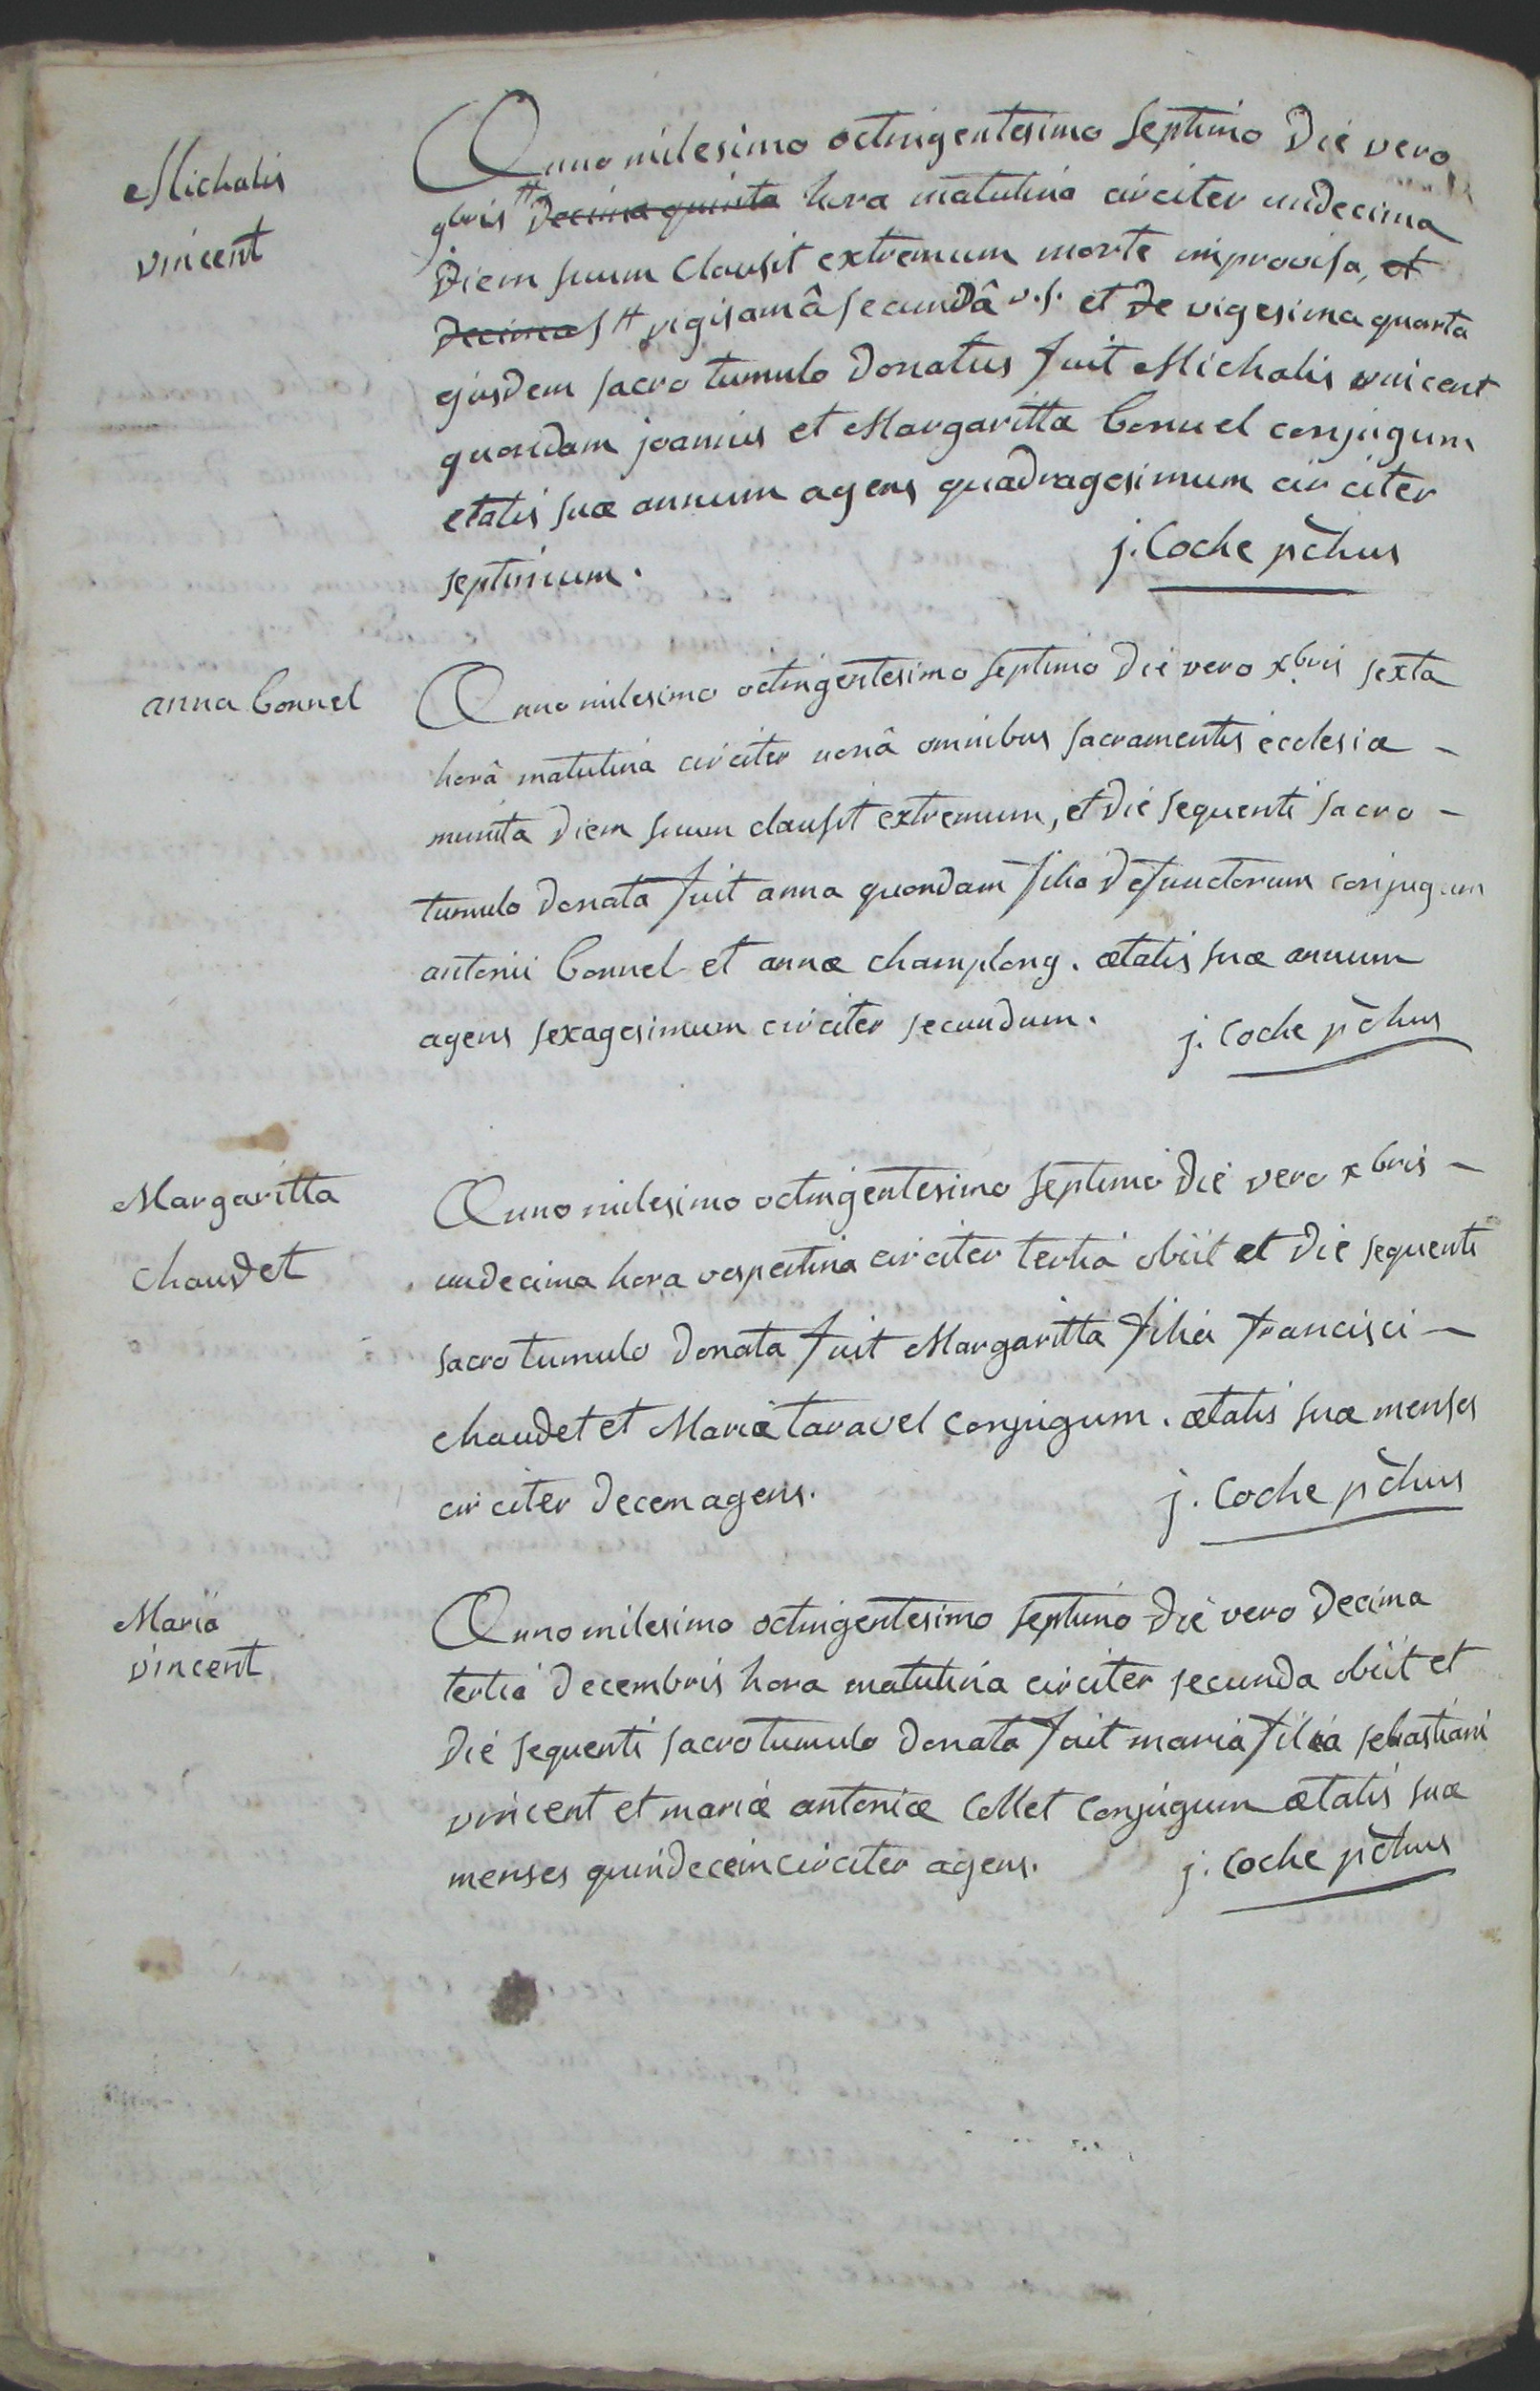 Michalis
vincent
Anno milesimo octingentesimo septimo Die vero
9bris # Decima quinta hora matutina circiter undecima
Diem suum clausit extremum morte improvisa, et
Decimas # vigisamâ secundâ v.s. et de vigesima quarta
ejusdem sacro tumulo Donatus fuit Michalis vincent
quondam joannis et Margaritta Connel conjugum
etatis suæ annum agens quadragesimum circiter
septimum.
j. Coche pc̄hus
anna Connel
Anno milesimo octingentesimo septimo Die vero xbris sexta
horâ matutina circiter nonâ omnibus sacramentis ecclesiæ -
munita Diem suum clausit extremum, et Die sequenti sacro -
tumulo Donata fuit anna quondam filia Defunctorum conjugum
antonii Connel et annæ champlong. ætatis suæ annum
agens sexagesimum circiter secundum.
j. Coche pc̄hus
Margaritta
chaudet
Anno milesimo octingentesimo septimo Die vero xbris -
undecima hora vespertina circiter tertia obiit et Die sequenti
sacro tumulo Donata fuit Margaritta filia francisci -
chaudet et Mariæ taravel conjugum. ætatis suæ menses
circiter Decem agens.
j. Coche pc̄hus
Maria
vincent
Anno milesimo octingentesimo septimo Die vero Decima
tertia Decembris hora matutina circiter secunda obiit et
Die sequenti sacro tumulo Donata fuit maria filia sebastiani
vincent et mariæ antoniæ collet conjugum ætatis suæ
menses quindecem circiter agens.
j. Coche pc̄hus